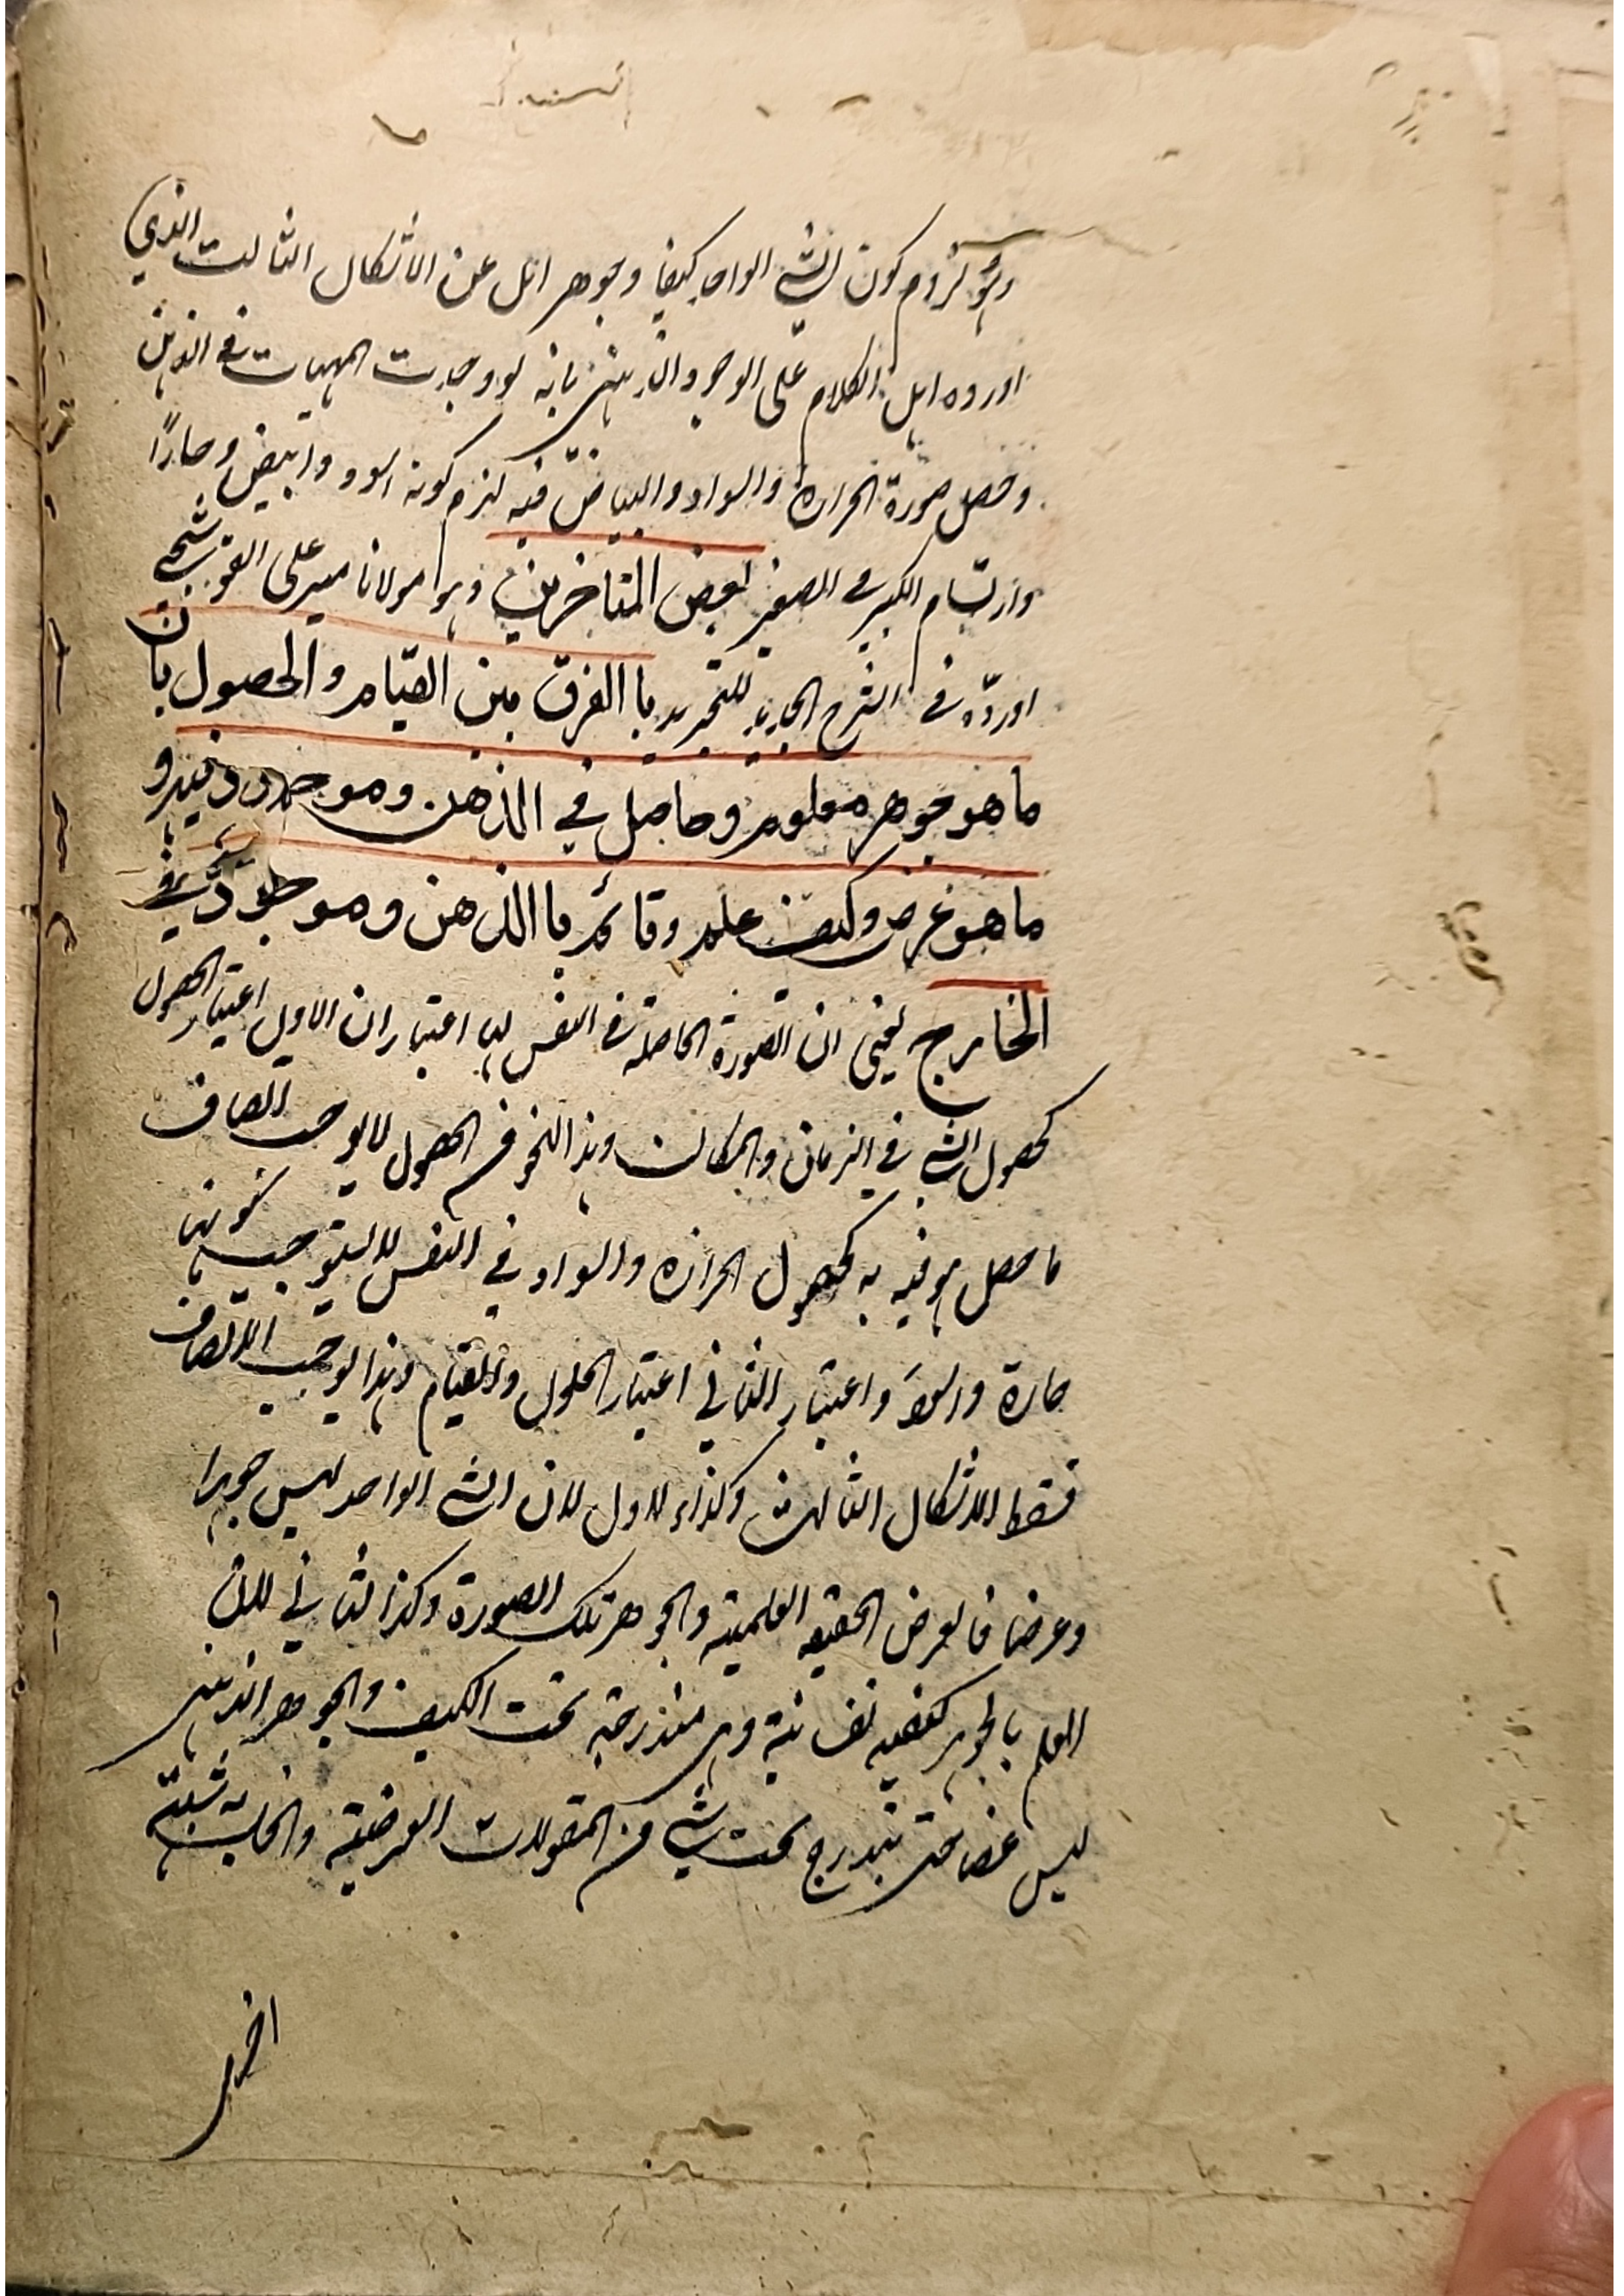 وهو لزوم كون الشئ الواحد كيفا وجوهرا بل عن الاشكال الثالث الذي
اورده اهل الكلام على الوجود الذهني بانه لو وجدت المهيات في الذهن
وحصل صورة الحرارة والسواد والبياض فيه لزم كونه اسود وابيض وحارًا
وارتسام الكبير في الصغير بعض المتاخرين وهو مولانا مير على القوشجي
اورده في الشرح الجديد للتجريد باالفرق بين القيام والحصول بان
ما هو جوهر معلوم وحاصل في الذهن وموجود فيه و
ما هو عرض وكيف علم وقائم باالذهن وموجود في
الخارج يعني ان الصورة الحاصلة في النفس لها اعتباران الاول اعتبار الحصول
كحصول الشئ في الزمان والمكان وهذا النحو من الحصول لا يوجب اتصاف
ما حصل هو فيه به كحصول الحرارة والسواد في النفس لا يستوجب كونها
حارة واسود واعتبار الثاني اعتبار الحلول والقيام وهذا يوجب الاتصاف
فسقط الاشكال الثالث وكذا الاول لان الشئ الواحد ليس جوهرا
وعرضا فالعرض الحقيقه العلمية والجوهر تلك الصورة وكذا الثاني لان
العلم بالجوهر كيفيه نفسانية وهي مندرجة تحت الكيف والجوهر الذهني
ليس عرضا حتى يندرج تحت شئ من المقولات العرضية والحاصل
اخرى